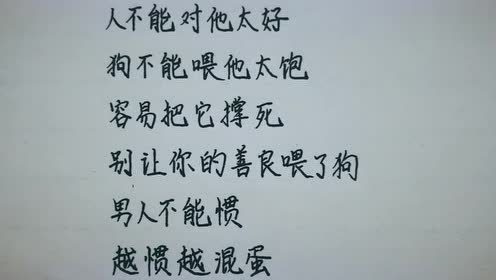 人不能对他太好
狗不能喂他太饱
容易把它撑死
别让你的善良喂了狗
男人不能惯
越惯越混蛋